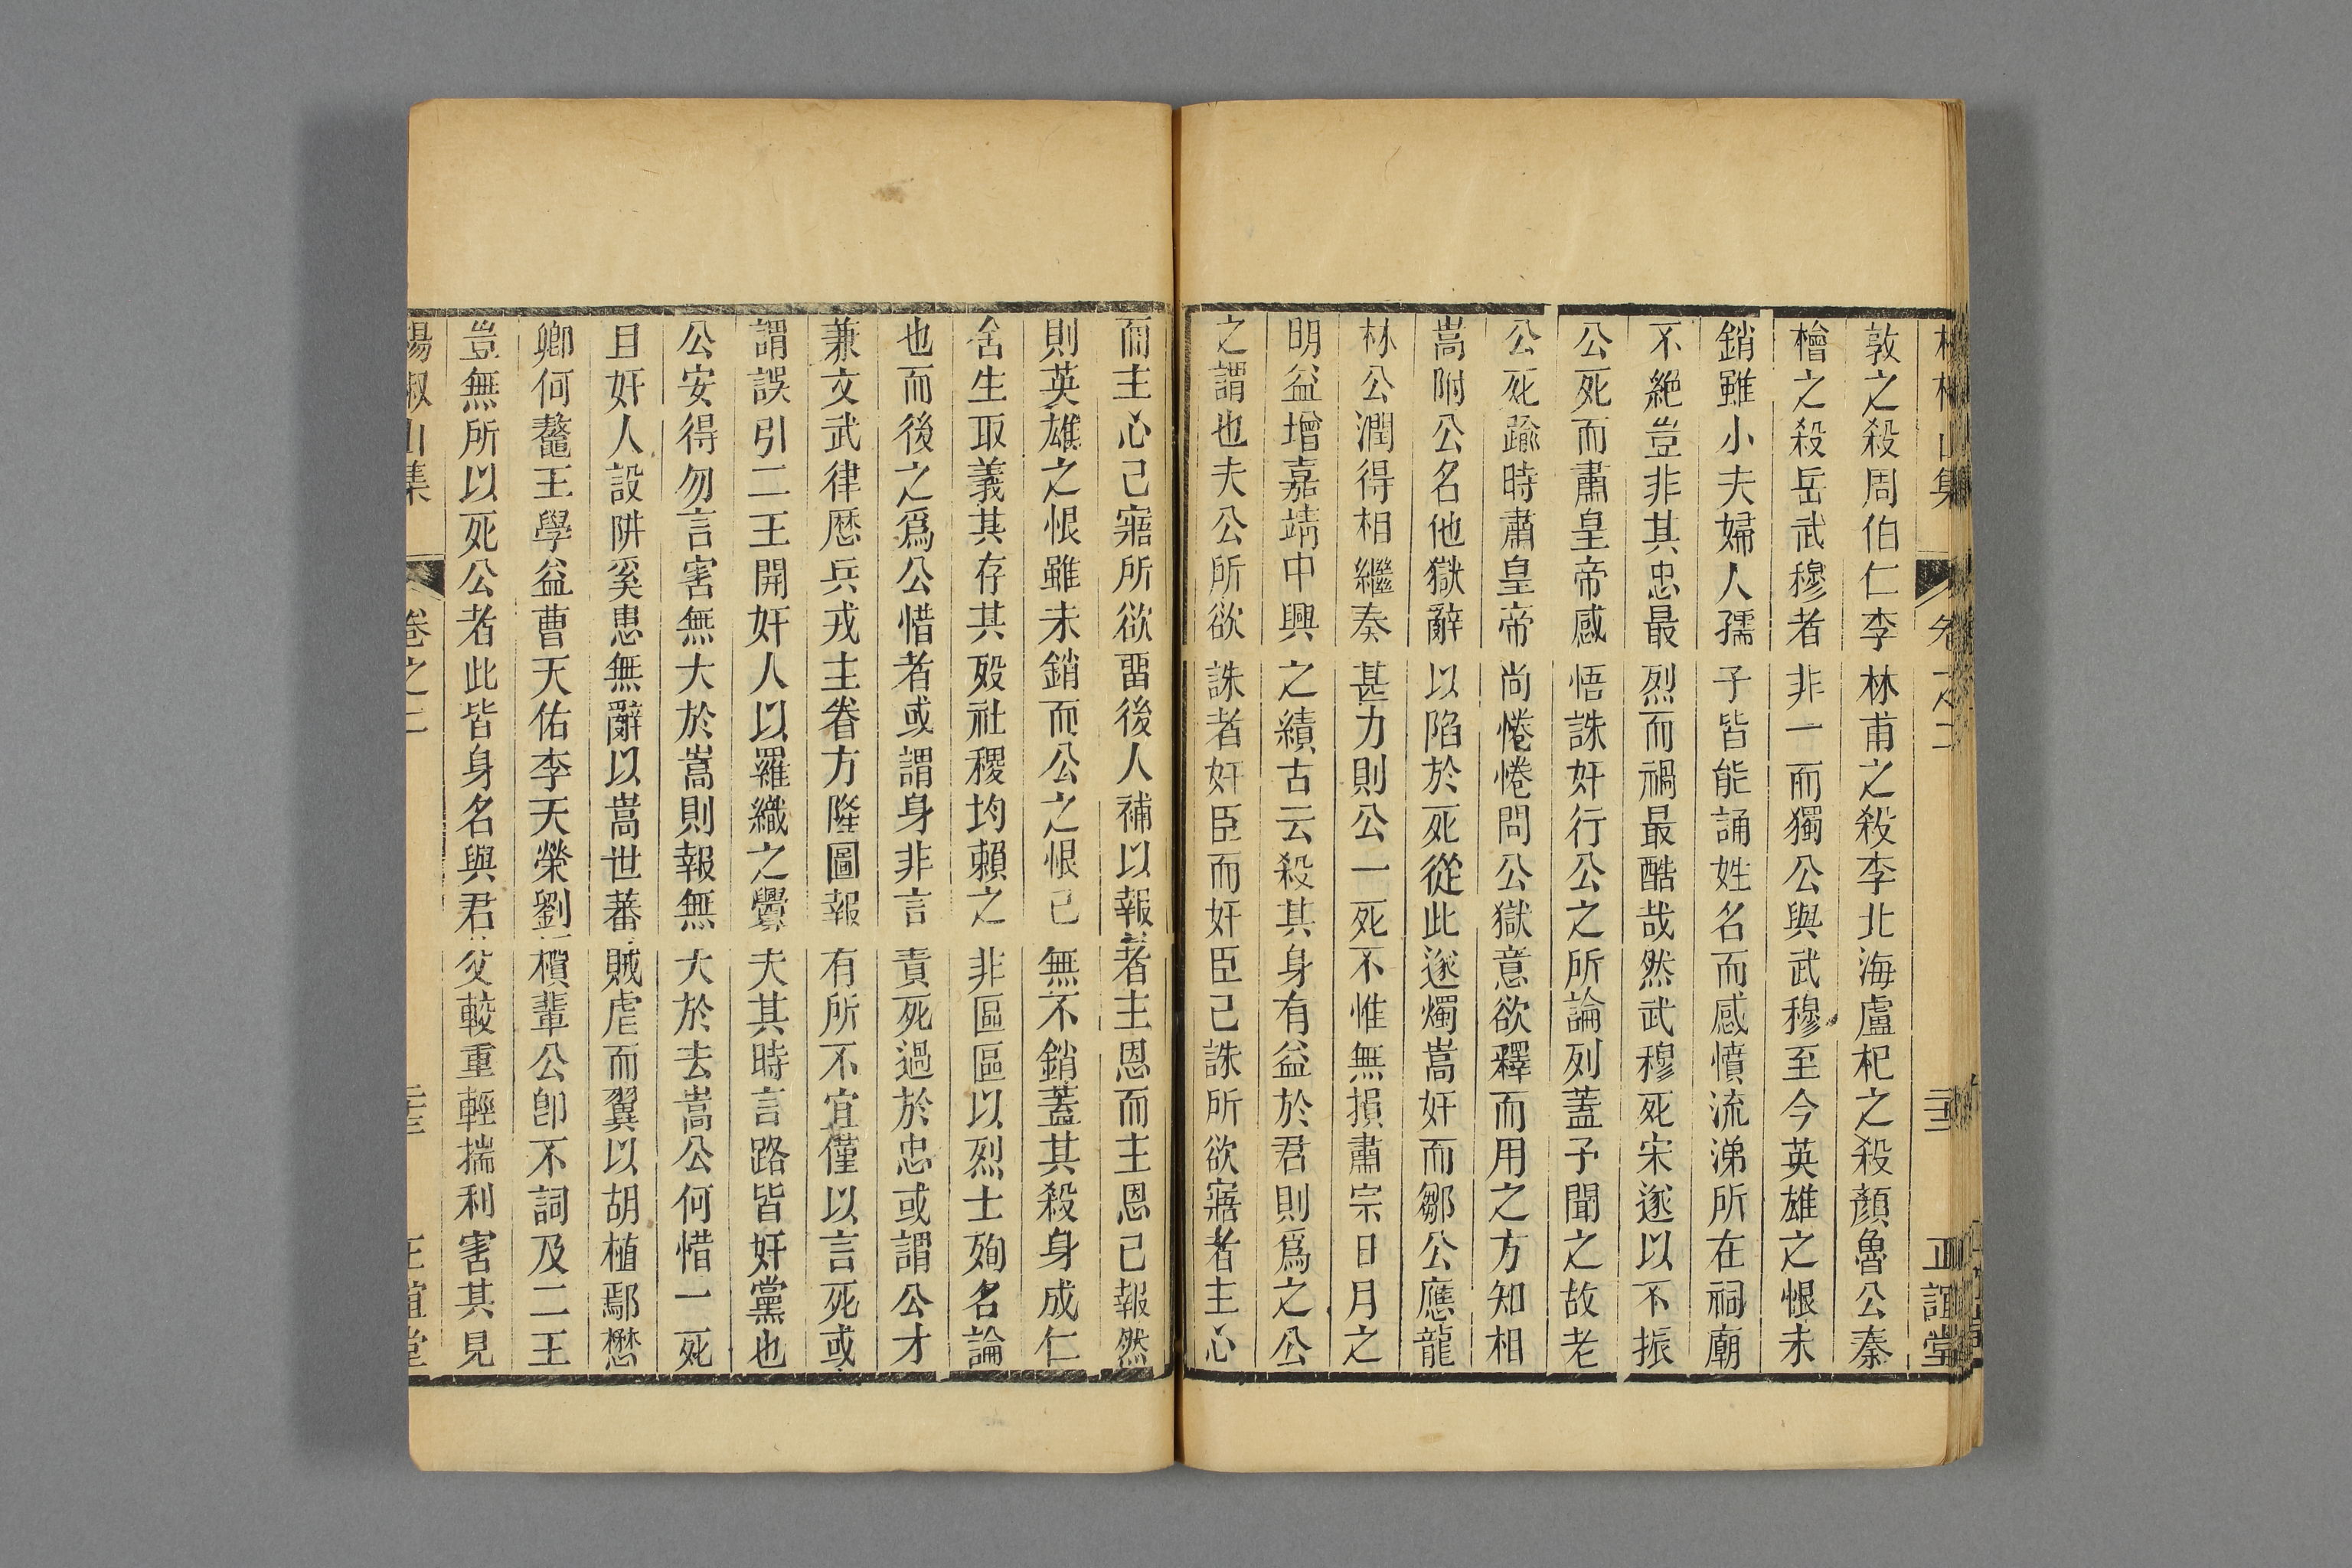 敦之殺周伯仁李林甫之殺李北海盧杞之殺顏魯公秦
檜之殺岳武穆者非一而獨公與武穆至今英雄之恨未
銷雖小夫婦人孺子皆能誦姓名而感憤流涕所在祠廟
不絶豈非其忠最烈而禍最酷哉然武穆死宋遂以不振
公死而肅皇帝感悟誅奸行公之所論列蓋予聞之故老
公死踰時肅皇帝尚惓惓問公獄意欲釋而用之方知相
嵩附公名他獄辭以陷於死從此遂燭嵩奸而鄒公應龍
林公潤得相繼奏甚力則公一死不惟無損肅宗日月之
明益增嘉靖中興之績古云殺其身有益於君則爲之公
之謂也夫公所欲誅者奸臣而奸臣已誅所欲寤者主心
而主心已寤所欲畱後人補以報者主恩而主恩已報然
則英雄之恨雖未銷而公之恨已無不銷蓋其殺身成仁
舍生取義其存其歿社稷均賴之非區區以烈士殉名論
也而後之爲公惜者或謂身非言責死過於忠或謂公才
兼文武律厯兵戎主眷方隆圖報有所不宜僅以言死或
謂誤引二王開奸人以羅織之釁夫其時言路皆奸黨也
公安得勿言害無大於嵩則報無大於去嵩公何惜一死
且奸人設阱奚患無辭以嵩世蕃賊虐而翼以胡植鄢懋
卿何鼇王學益曹天佑李天榮劉檟輩公卽不詞及二王
豈無所以死公者此皆身名與君父較重輕揣利害其見
楊椒山集　卷之二　正誼堂